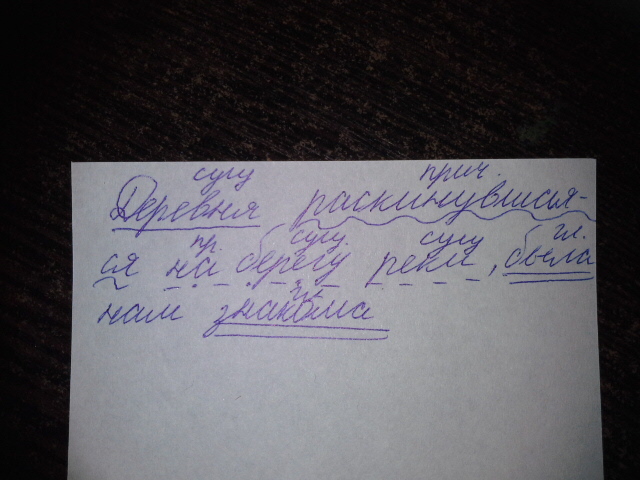 сущ прич.
Деревня раскинувшая-
пр. сущ. сущ гл.
ся на берегу реки, была
нам знакома